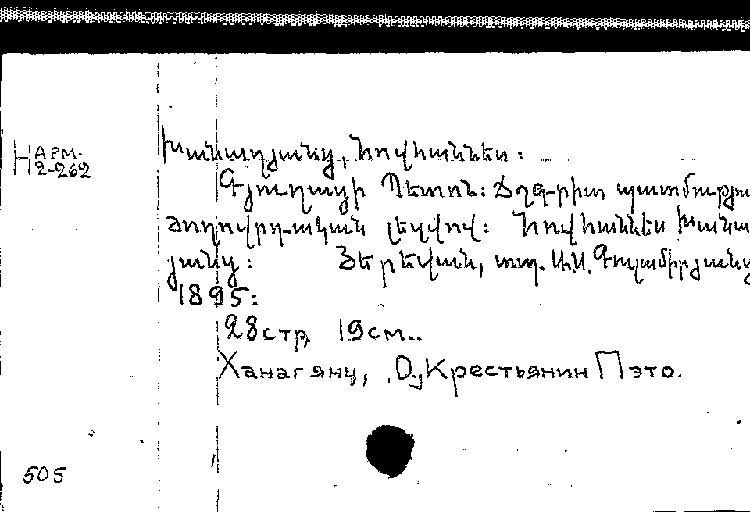 H АРМ.
2-262
Խանաղյանց, Հովհաննես:
Գյուղացի Պետոն: Ճշգրիտ պատմությա
Ժողովրդական լեզվով: Հովհաննես Խանա
յանց: Յերեվան, տպ.
1895:
28 стр, 19 см..
Ханагянц, О, Крестьянин Пэто.
505